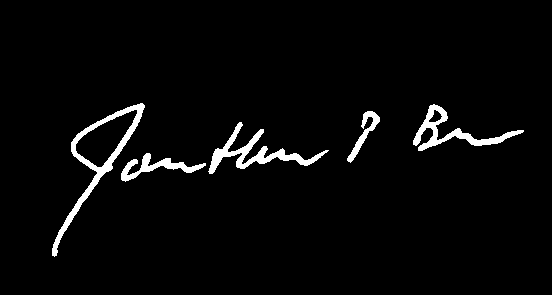 Jonathan P